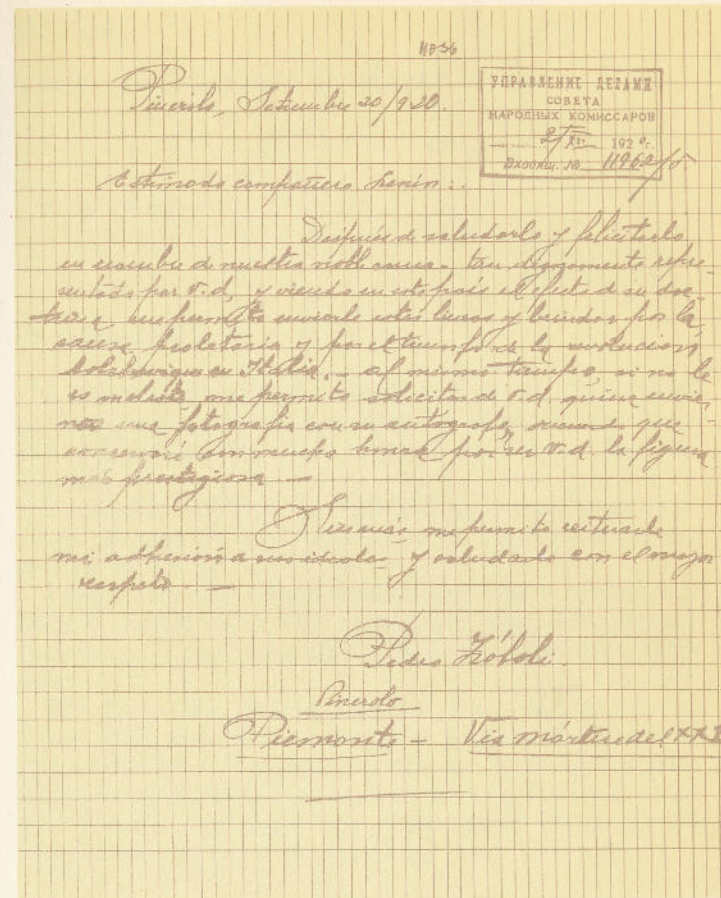 Pinerolo, Setiembre 20/920.
УПРАВЛЕНИЕ ДЕЛАМИ
СОВЕТА
НАРОДНЫХ КОМИССАРОВ
192 0г.
Входящ. № 11962/
Estimado compañero Lenin:
Después de saludarlo y felicitarlo
en nombre de nuestra noble causa tan dignamente repre-
sentada por V.d, y viendo en este país el efecto de su doc-
trina, me permito enviarle estas líneas y brindar por la
causa proletaria y por el triunfo de la revolución
bolchevique en Italia. — al mismo tiempo, si no le
es molesto me permito solicitar de V.d. quiera envie-
una fotografía con su autógrafo, que
conservaré con mucho honor por ser V.d. la figura
más prestigiosa —
Sin más, me permito reiterarle
mi adhesión a sus y saludarlo con el mayor
respeto. —
Pedro Zóboli.
Pinerolo
Piemonte — Via mártire del XXI